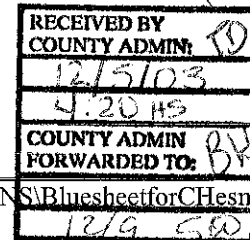 RECEIVED BY
COUNTY ADMIN:
12/5/03
4:20
COUNTY ADMIN
FORWARDED TO:
NS\BluesheetforCHesn
12/9